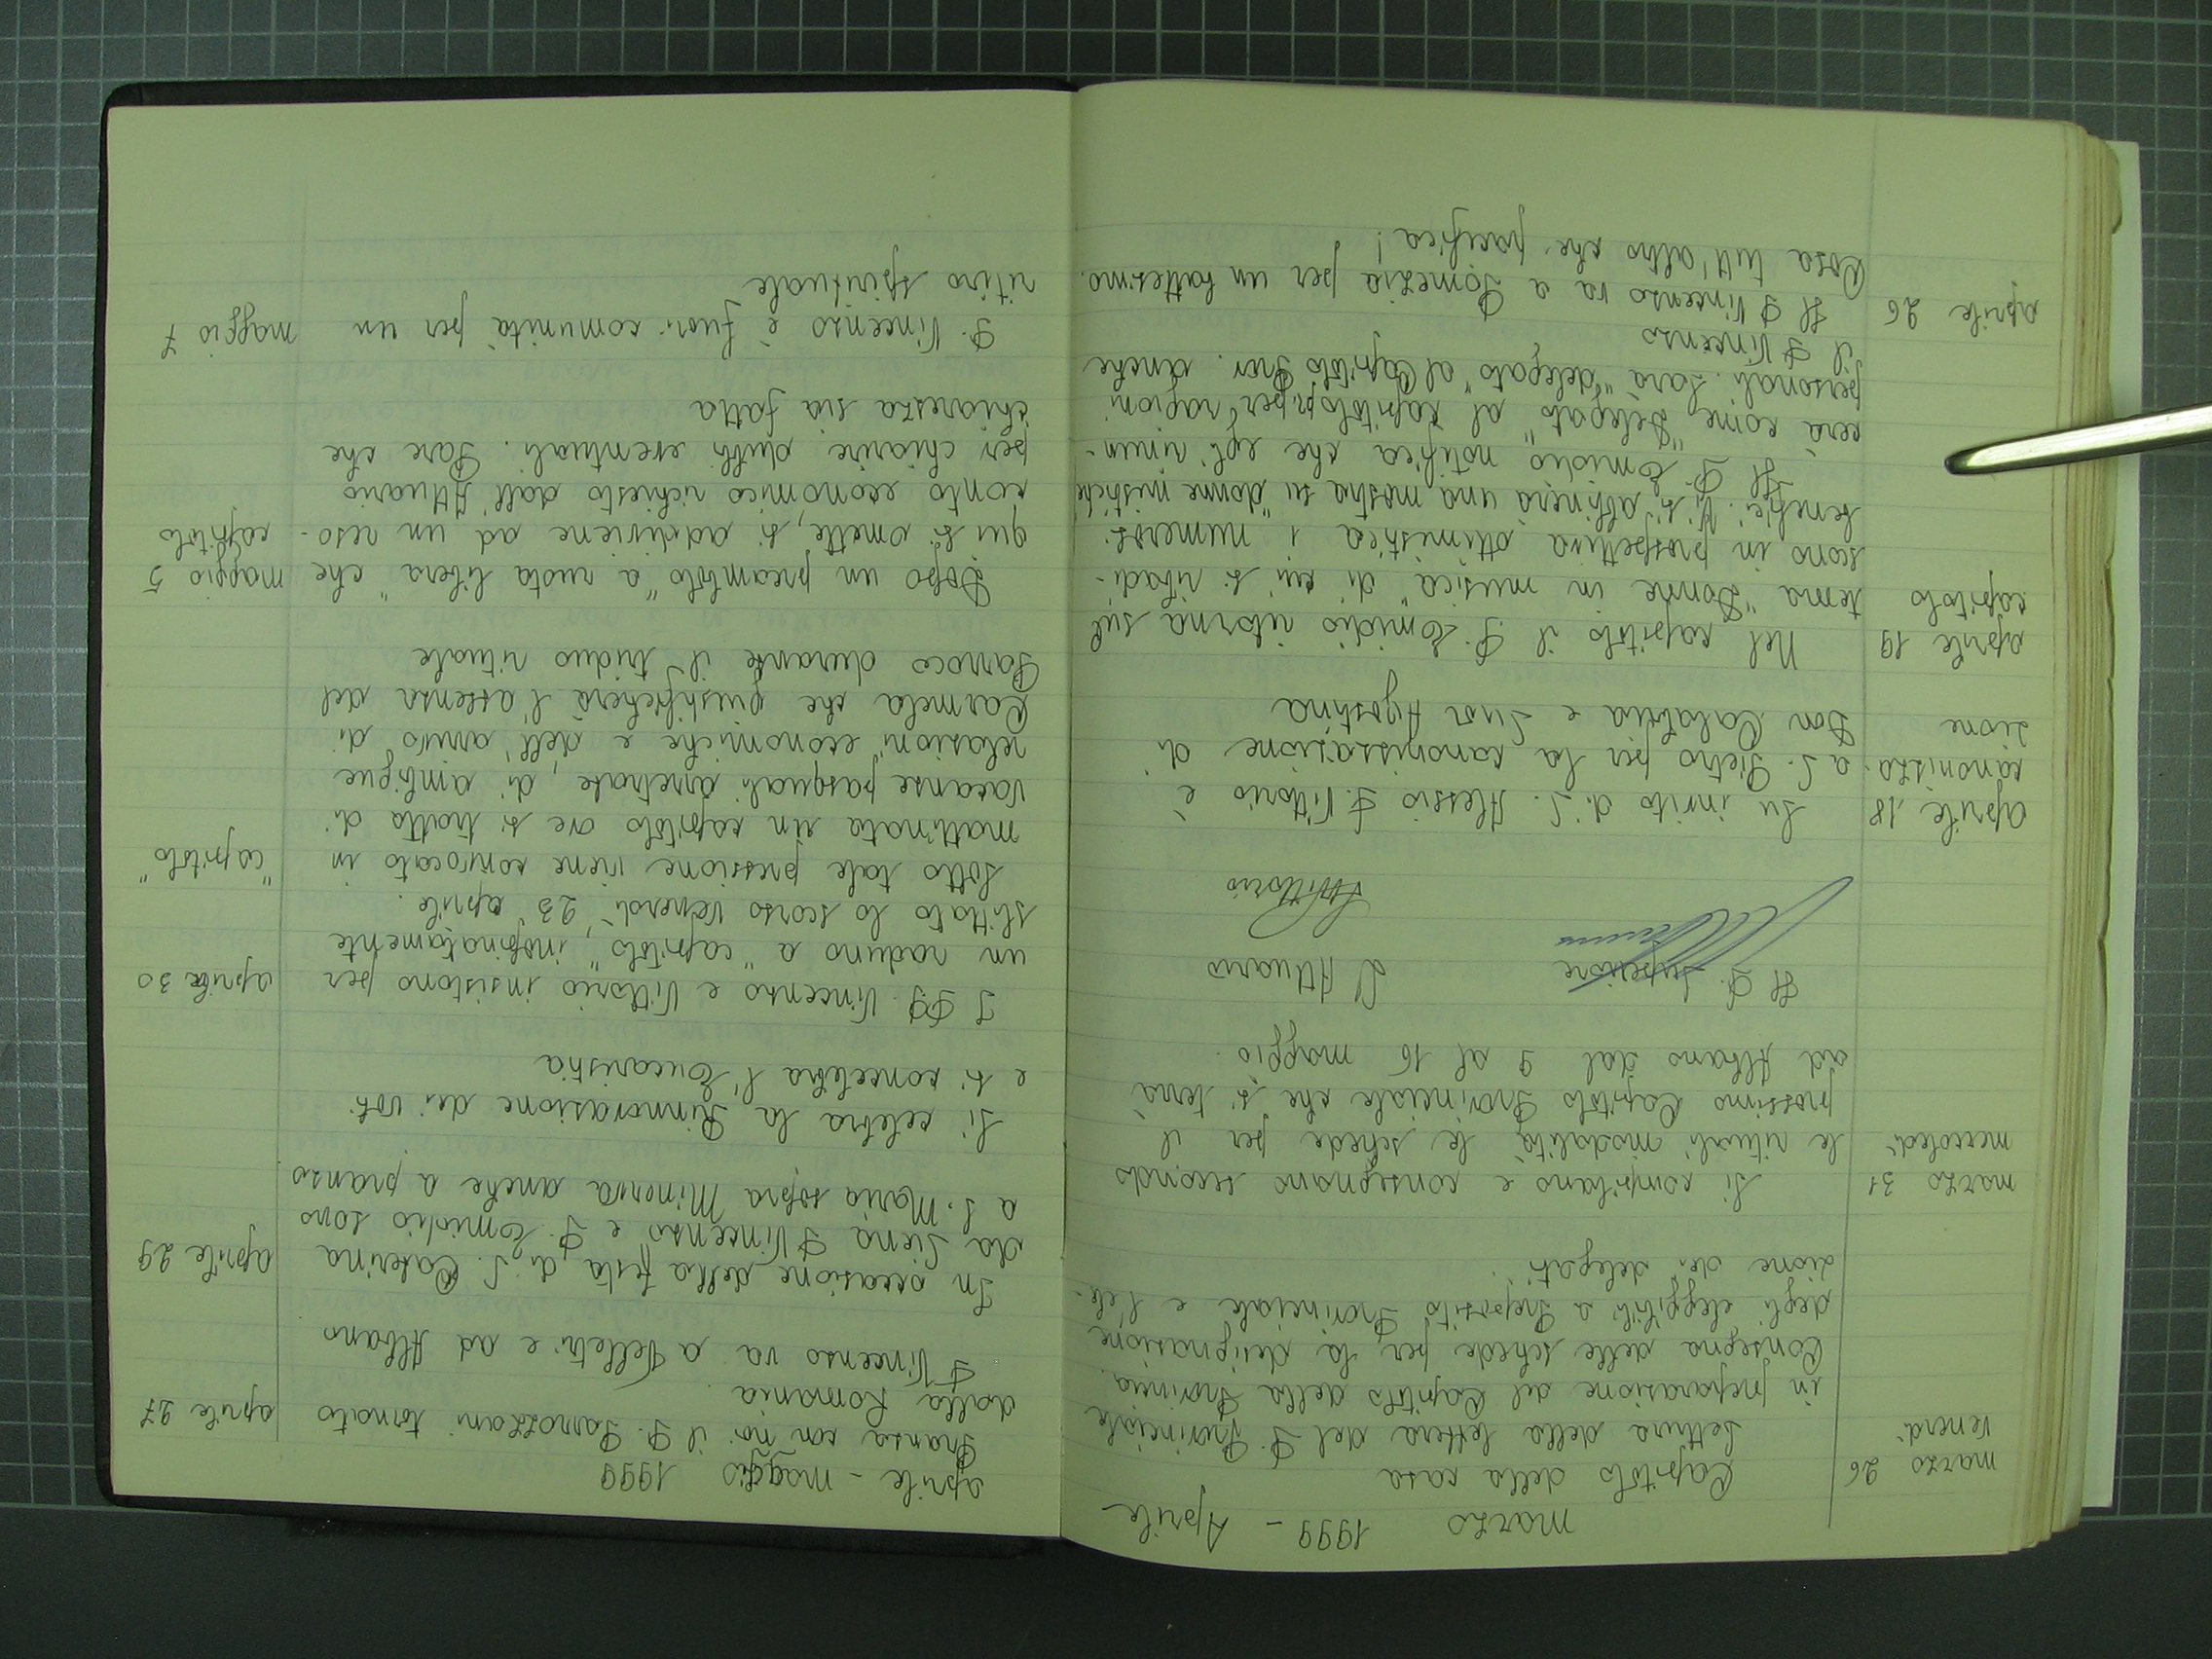 marzo 1999 - Aprile
marzo 26 Capitolo della casa
venerdì Lettura della lettera del P. Provinciale
in preparazione del Capitolo della Provincia.
Consegna delle schede per la designazione
degli eleggibili a Preposito Provinciale e l'ele-
zione dei delegati.
marzo 31 Si compilano e consegnano secondo
mercoledì le rituali modalità le schede per il
prossimo Capitolo Provinciale che si terrà
ad Albano dal 9 al 16 maggio.
Il P. Superiore L'Attuario
P. Vittorio
aprile 18 Su invito di S. Alessio P. Vittorio è
canonizza- a S. Pietro per la canonizzazione di
zione Don Calabria e Suor Agostina
aprile 19 Nel capitolo il P. Emidio ritorna sul
capitolo tema "Donne in musica" di cui si ribadi-
scono in prospettiva ottimistica i numerosi
benefici. Vi si abbinerà una mostra su "donne mistiche"
Il P. Emidio notifica che egli rinun-
cerà come "Delegato" al capitolo p. per ragioni
personali. Sarà "delegato" al Capitolo Prov. anche
il P Vincenzo
aprile 26 Il P Vincenzo va a Pomezia per un battesimo.
Cosa tutt'altro che pacifica!
aprile - maggio 1999
Pranza con noi il P. Parrozzani tornato aprile 27
dalla Romania.
P Vincenzo va a Velletri e ad Albano
In occasione della festa di S. Caterina aprile 29
da Siena P Vincenzo e P. Emidio sono
a S. Maria sopra Minerva anche a pranzo
Si celebra la Rinnovazione dei voti
e si concelebra l'Eucaristia
I PP. Vincenzo e Vittorio insistono per aprile 30
un raduno a "capitolo" inopinatamente
slittato lo scorso venerdì 23 aprile.
Sotto tale pressione viene convocato in "capitolo"
mattinata un capitolo ove si tratta di
vacanze pasquali arretrate, di ambigue
relazioni economiche e dell'arrivo di
Carmela che giustificherà l'assenza del
Parroco durante il triduo rituale
Dopo un preambolo "a ruota libera" che maggio 5
qui si omette, si addiviene ad un reso- capitolo
conto economico richiesto dall'Attuario
per chiarire dubbi eventuali. Pare che
chiarezza sia fatta
P. Vincenzo è fuori comunità per un maggio 7
ritiro spirituale